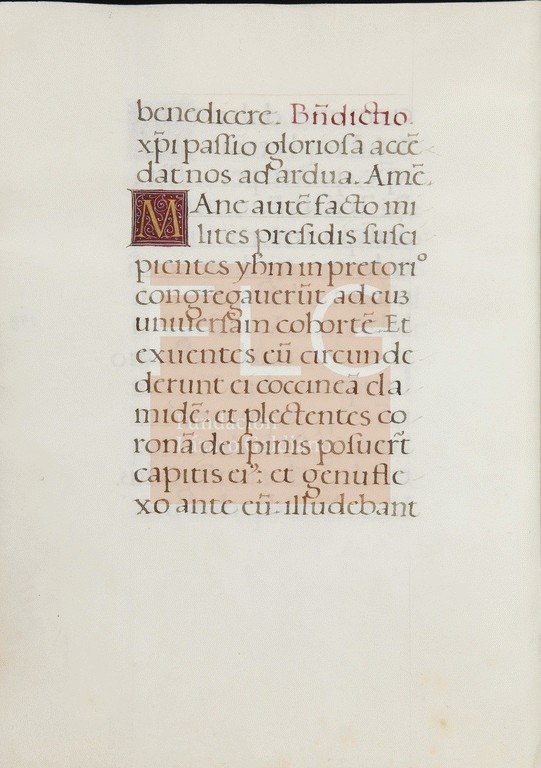 benedicere. Bñdictio.
xp̄i paſſio glorioſa accē
dat nos ad ardua. Amē.
MAne autē facto mi
lites preſidis ſuſci
pientes yhm in pretoriº
congregauerūt ad euʒ
uniuerſam cohortē. Et
exuentes eū circunde
derunt ei coccineā cla
midē: et plectentes co
ronā de ſpinis poſuert̄
capitis eiꝰ: et genu fle
xo ante eū: illudebant
FLG
Fundación